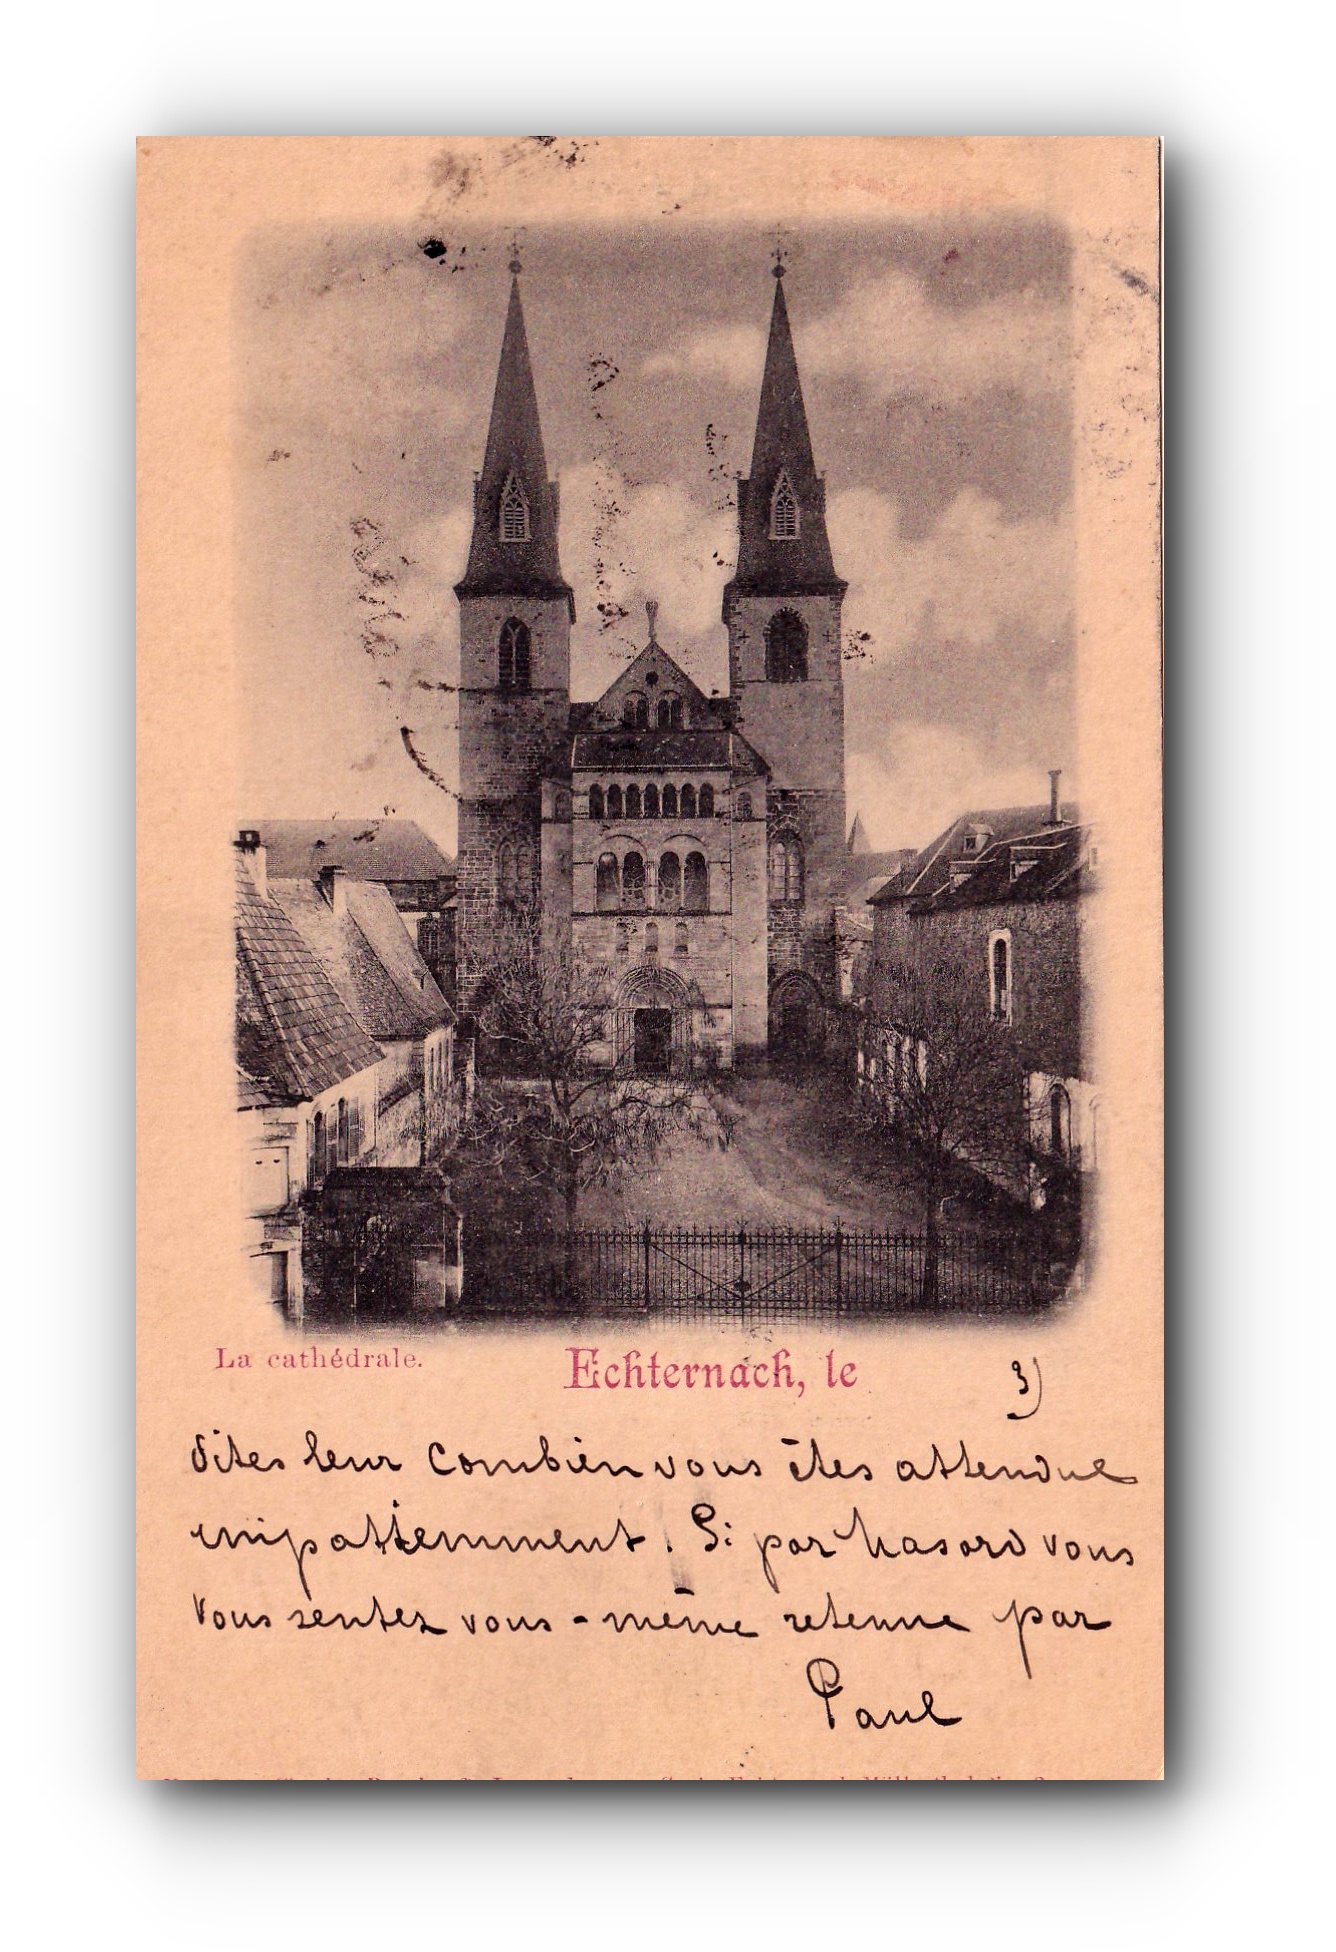 La cathédrale. Echternach, le 3)
dites leur combien vous êtes attendue
impattiemment. Si par hasard vous
vous sentez vous-même retenue par
Paul